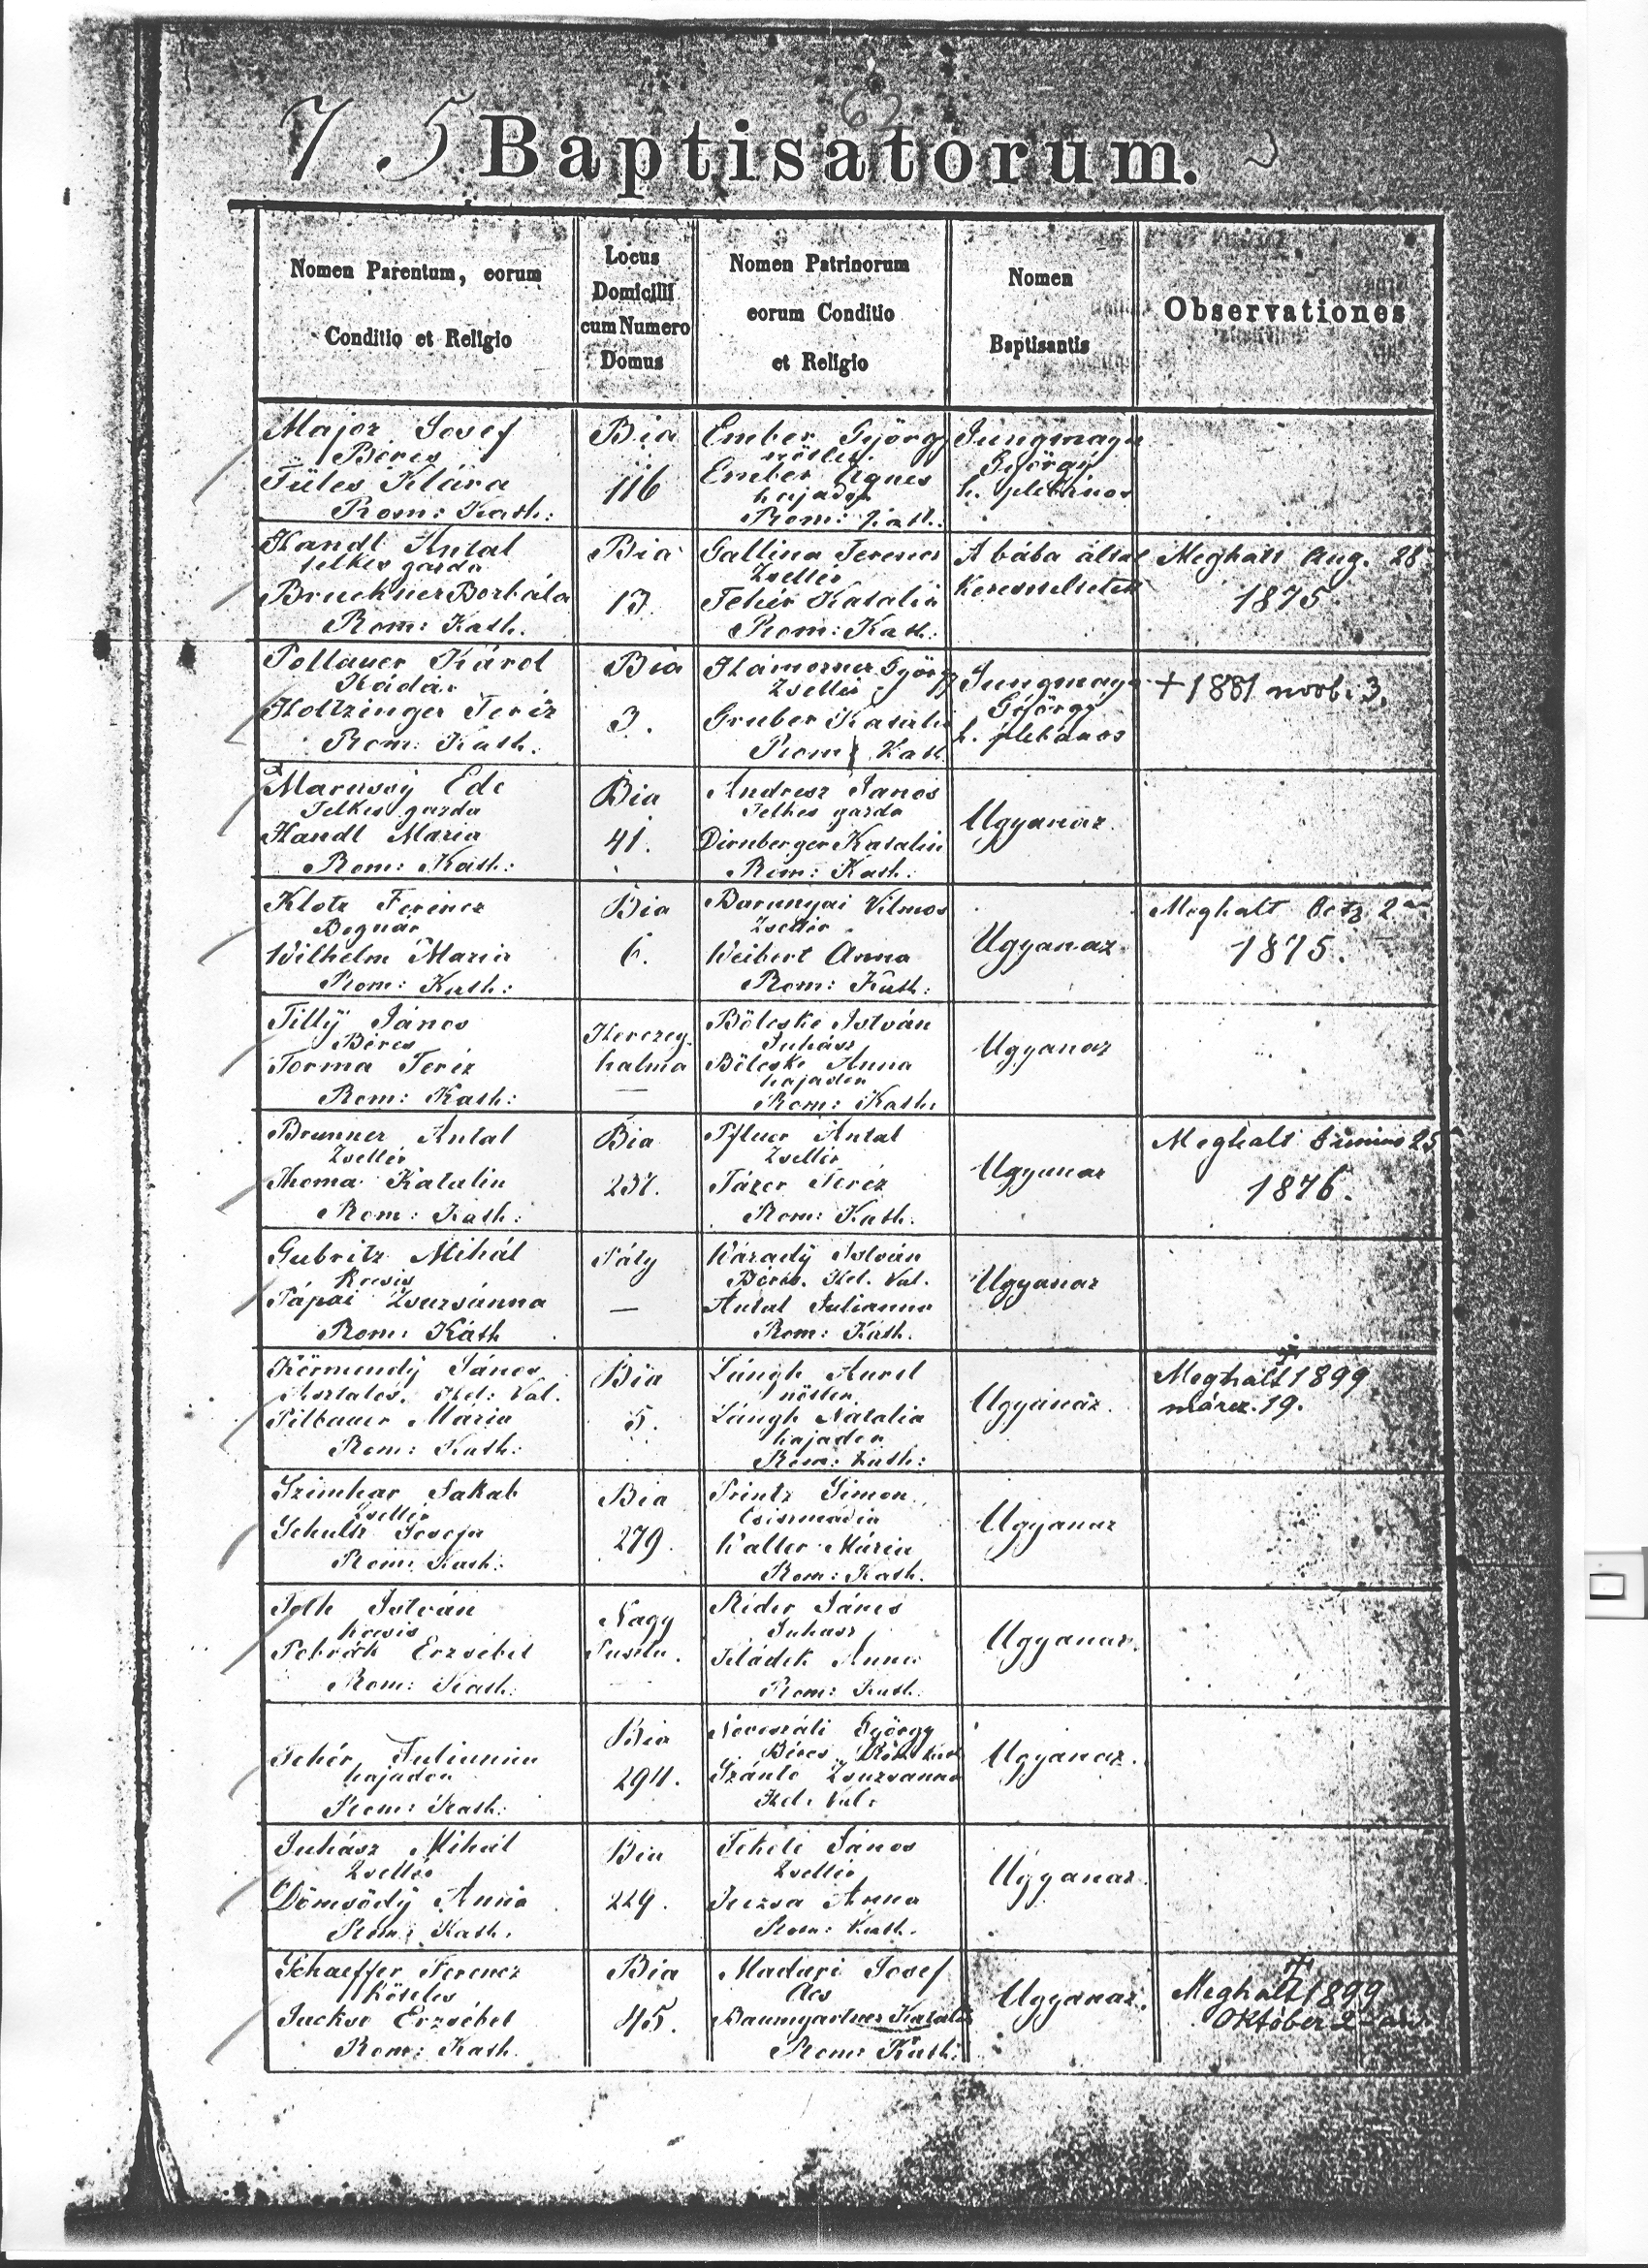 7 5 Baptisatorum.
62
Nomen Parentum, eorum
Conditio et Religio
Locus
Domicilii
cum Numero
Domus
Nomen Patrinorum
eorum Conditio
et Religio
Nomen
Baptisantis
Observationes
Major Josef
Béres
Füles Klára
Rom: Kath:
Bia
116
Ember György
nőtlen
Ember Ágnes
hajadon
Rom: Kath.
Jungmayer
György
h. plebános
Handl Antal
telkes gazda
Bruckner Borbála
Rom: Kath.
Bia
13.
Gallina Ferencz
Zsellér
Fehér Katalin
Rom: Kath:
A bába által
Kereszteltetett
Meghalt Aug. 28
1875
Pollauer Károl
Kádár
Holtzinger Teréz
Rom: Kath.
Bia
3.
Hámorner György
Zsellér
Gruber Katalin
Rom: Kath
Jungmayer
György
h. plebános
+ 1881 novb. 3.
Marussy Ede
Telkes gazda
Handl Maria
Rom: Kath:
Bia
41.
Andresz János
Telkes gazda
Dirnberger Katalin
Rom: Kath:
Ugyanaz.
Klotz Ferencz
Bognár
Wilhelm Maria
Rom: Kath:
Bia
6.
Baranyai Vilmos
Zsellér
Weibert Anna
Rom: Kath:
Ugyanaz
Meghalt Octz 2
1875.
Tilly János
Béres
Torma Teréz
Rom: Kath:
Herczeg
halma
—
Bölcske István
Juhász
Bölcske Anna
hajadon
Rom: Kath:
Ugyanaz
Brunner Antal
Zsellér
Thoma Katalin
Rom: Kath:
Bia
237.
Pfluer Antal
Zsellér
Tázer Teréz
Rom: Kath.
Ugyanaz
Meghalt Junius 25
1876.
Gubritz Mihál
Kocsis
Pápai Zsuzsánna
Rom: Káth
Pály
—
Várady István
Béres. Hel. Val.
Antal Julianna
Rom: Kath.
Ugyanaz
Körmendy János
Asztalos. Hel: Val.
Pilbauer Mária
Rom: Kath:
Bia
5.
Lángh Aurel
nőtlen
Lángh Natalia
hajadon
Rom: Kath:
Ugyanaz.
Meghalt 1899
márcz. 19.
Szimhar Jakab
Zsellér
Schultz Josefa
Rom: Kath:
Bia
279.
Printz Simon
Csizmadia
Walter Mária
Rom: Kath.
Ugyanaz
Toth István
kocsis
Erzsébet
Rom: Kath:
Nagy
Puszta.
Rider János
Juhasz
Hládek Anna
Rom: Kath.
Ugyanaz.
Fehér Julianna
hajadon
Rom: Kath:
Bia
294.
György
Béres Rom Kath
Szántó Zsuzsanna
Hel: Val:
Ugyanaz.
Juhász Mihál
Zsellér
Dömsödy Anna
Rom: Kath.
Bia
229.
Fekete János
Zsellér
Juzsa Anna
Rom: Kath.
Ugyanaz
Schaeffer Ferencz
Köteles
Juckse Erzsébet
Rom: Kath.
Bia
45.
Madari Josef
Acs
Baumgartner Katalin
Rom: Kath:
Ugyanaz.
Meghalt 1899
Október 2-án